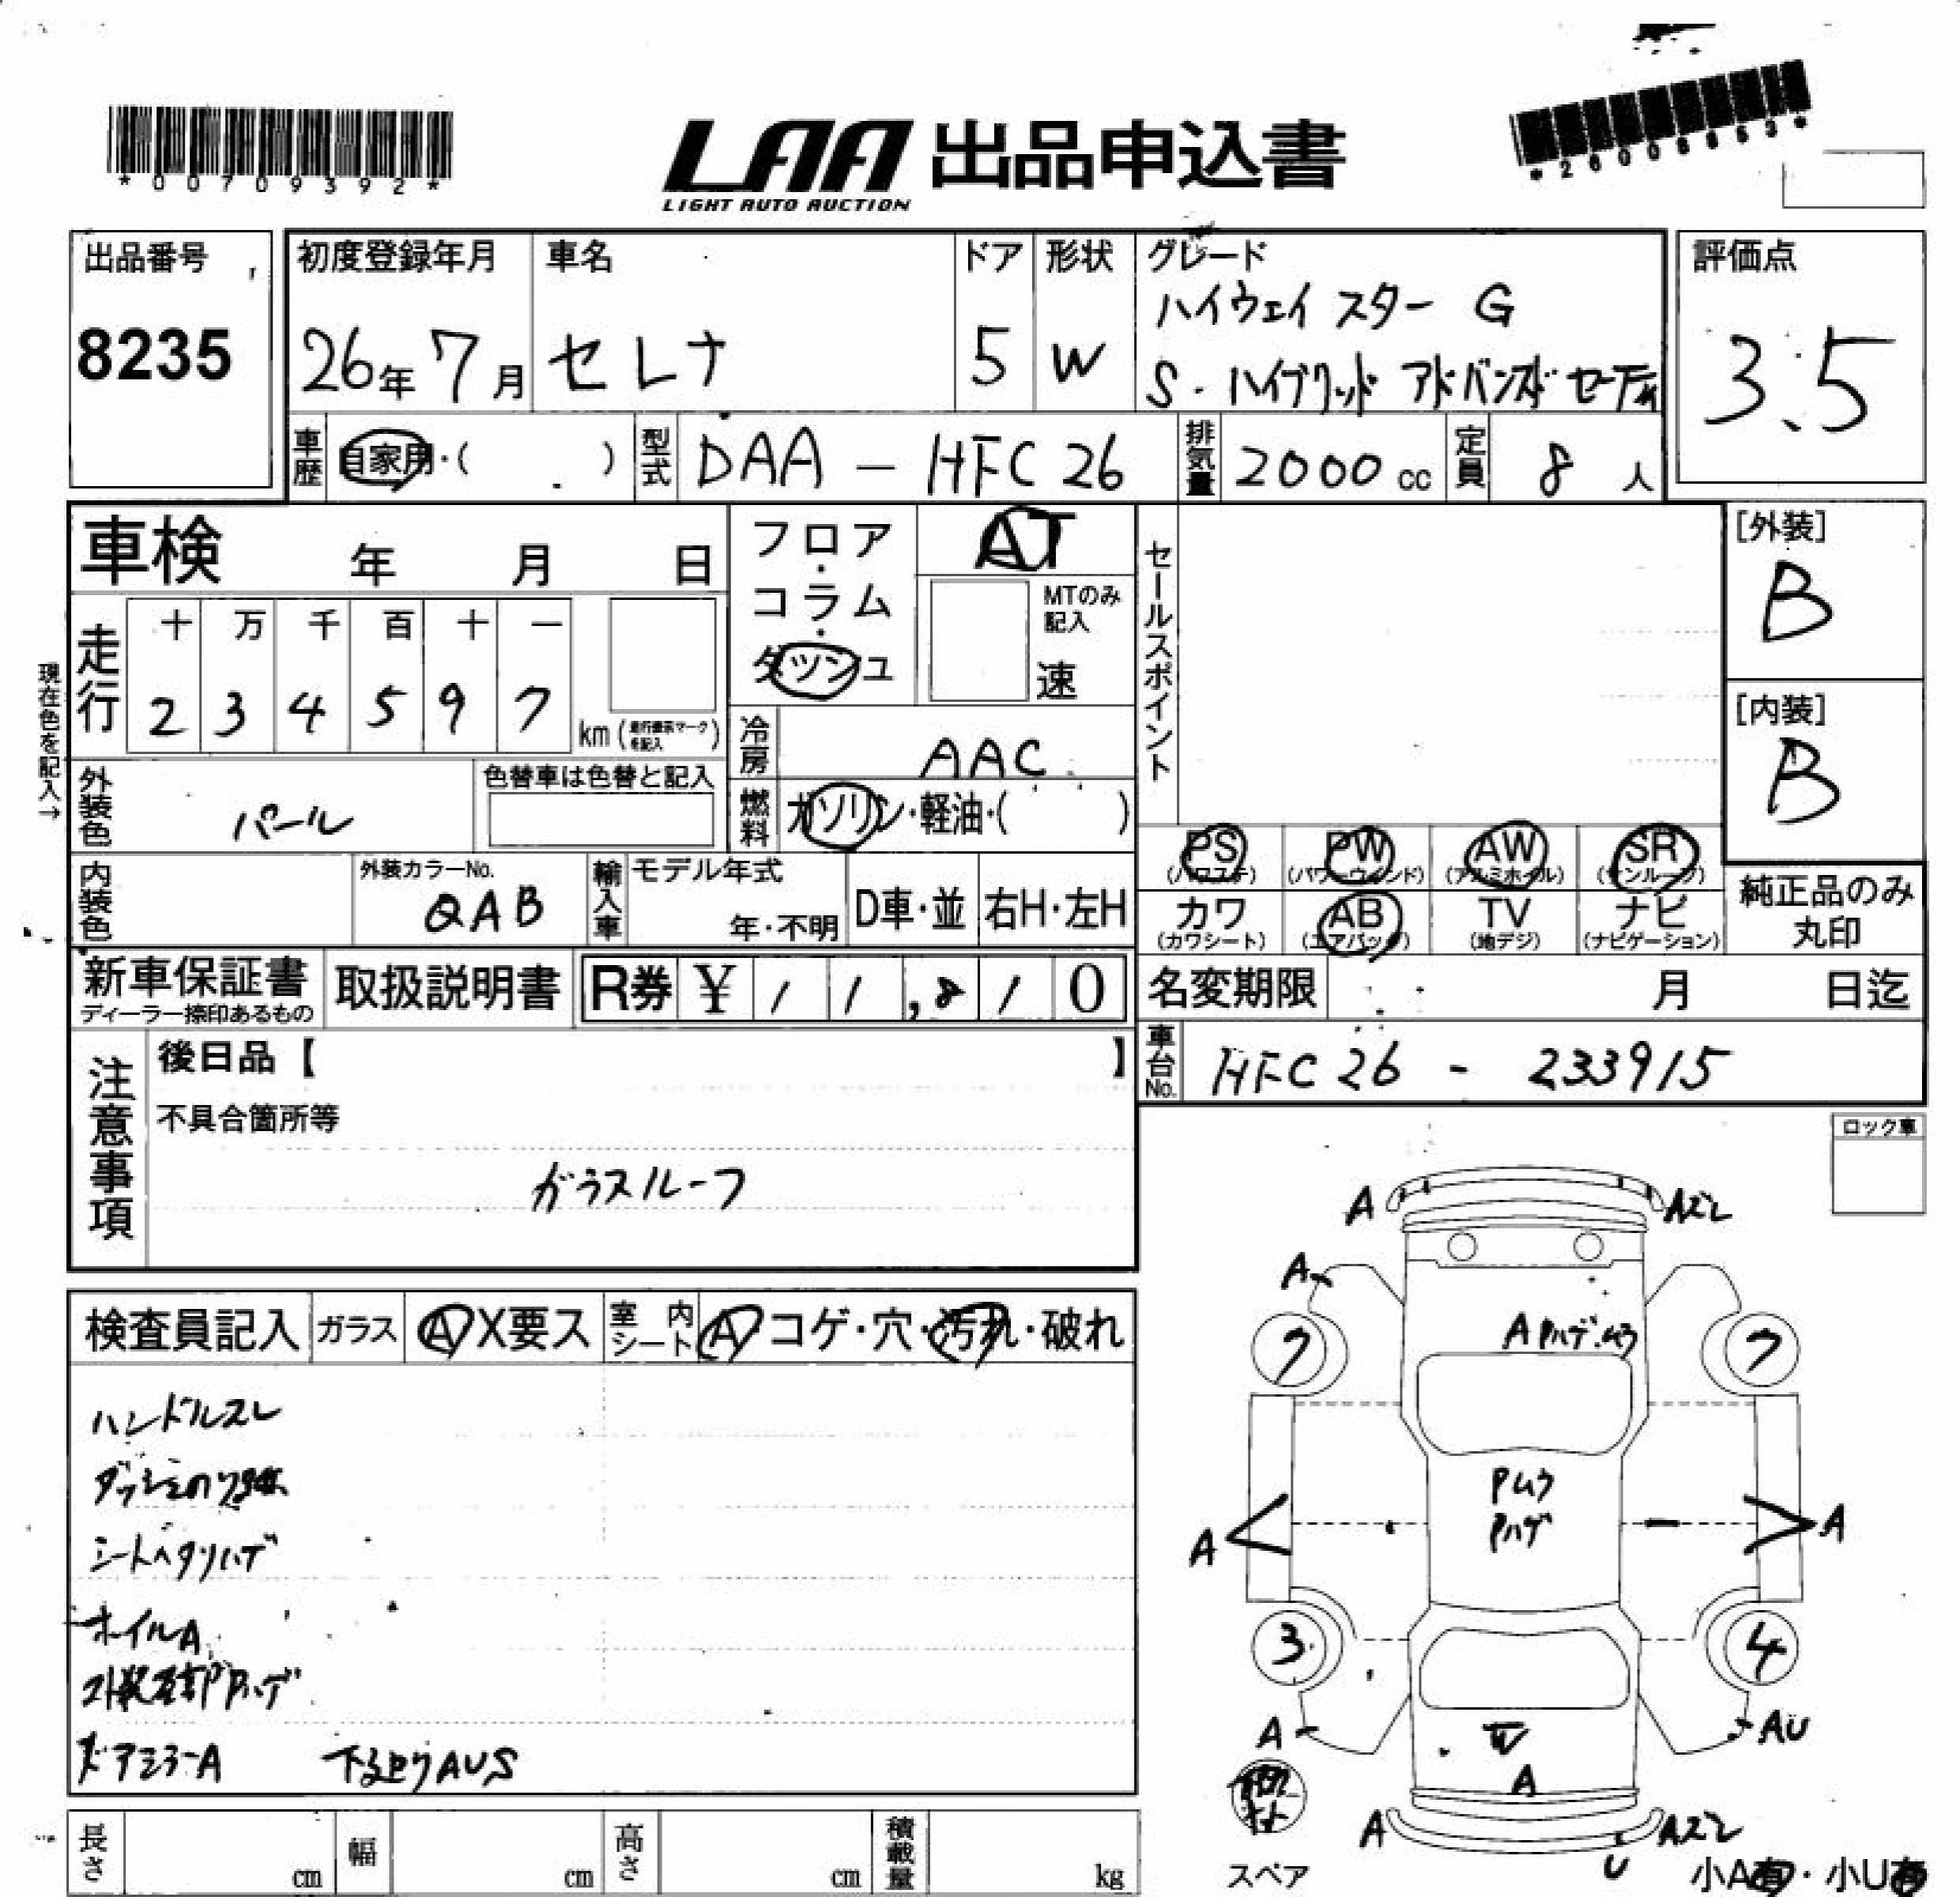 *00709392*
LAA 出品申込書
LIGHT AUTO AUCTION
出品番号
8235
初度登録年月
26年 7月
車名
セレナ
ドア
5
形状
W
グレード
ハイウェイスター G
S-ハイブリッド アドバンスド セーフティ
評価点
3.5
車歴 自家用・( )
型式 DAA - HFC26
排気量 2000 cc
定員 8 人
車検 年 月 日
フロア・コラム・ダッシュ
AT
MTのみ記入
速
セールスポイント
[外装]
B
[内装]
B
現在色を記入→
走行
十 万 千 百 十 一
2 3 4 5 9 7
km (走行表示マークを記入)
冷房 AAC
燃料 ガソリン・軽油・( )
外装色 パール
色替車は色替と記入
内装色
外装カラーNo.
QAB
輸入車
モデル年式
年・不明
D車・並
右H・左H
PS (パワステ)
PW (パワーウィンド)
AW (アルミホイル)
SR (サンルーフ)
カワ (カワシート)
AB (エアバッグ)
TV (地デジ)
ナビ (ナビゲーション)
純正品のみ丸印
新車保証書
ディーラー捺印あるもの
取扱説明書
R券 ¥ 11,810
名変期限 月 日迄
車台No. HFC26 - 233915
注意事項
後日品【 】
不具合箇所等
ガラスルーフ
ロック車
検査員記入
ガラス A X要ス
室内シート A コゲ・穴・汚れ・破れ
ハンドルスレ
シートヘタリハゲ
ホイルA
ドアミラーA 下回りAUS
A Aズレ
A
A Pハゲ.ムラ
7 7
Pムラ
Pハゲ
A A
3 4
A AU
W
A
A Aズレ
U
スペア
小A有・小U有
長さ cm
幅 cm
高さ cm
積載量 kg